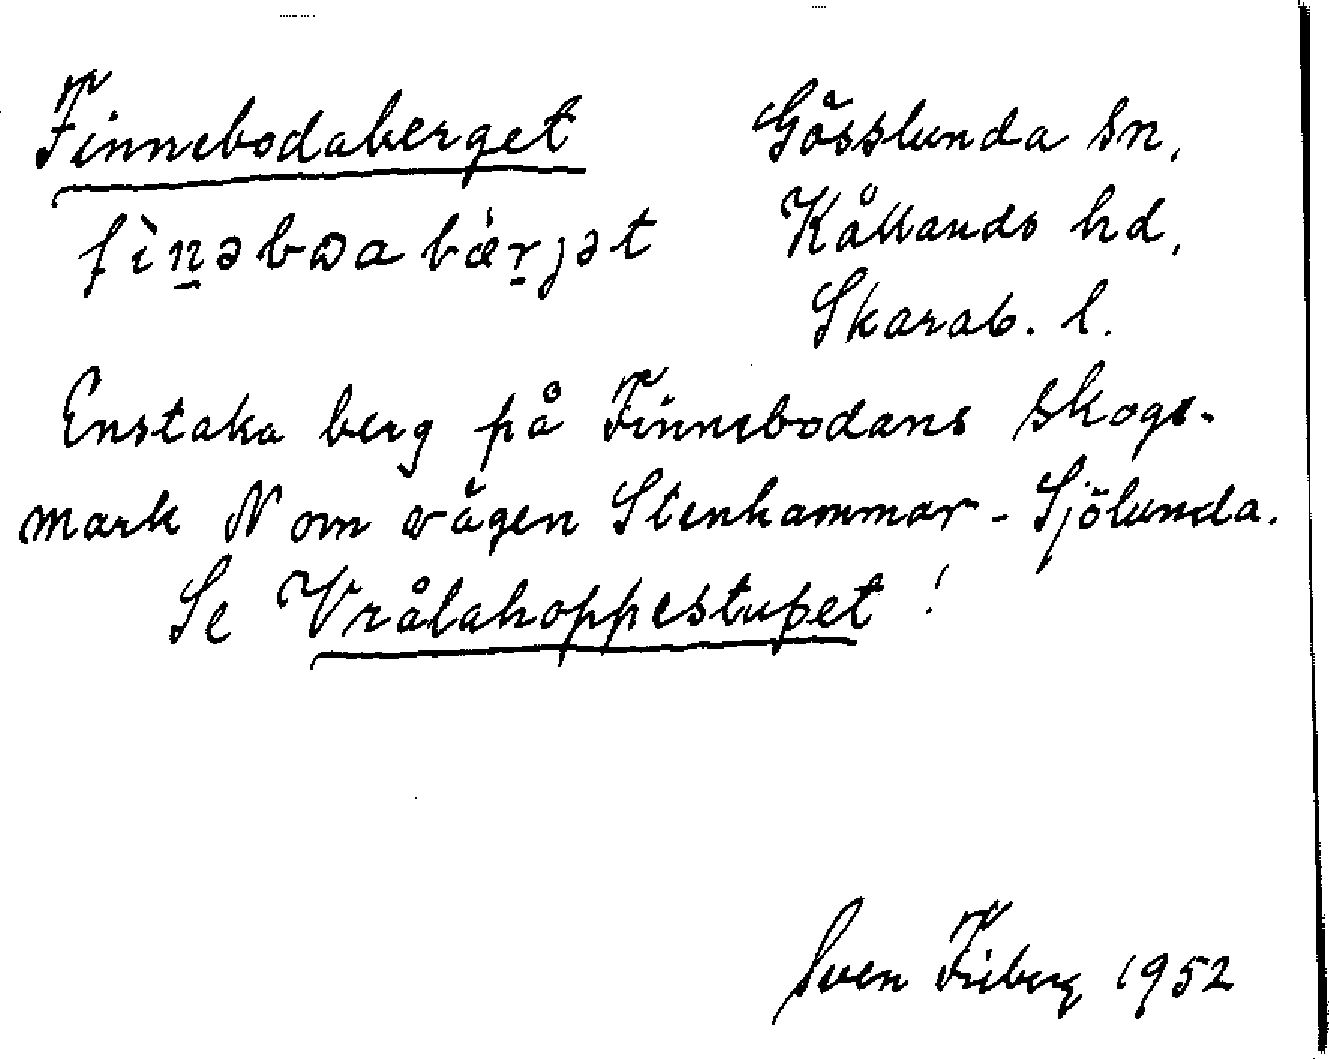 Finnebodaberget
Gösslunda sn,
fìn̲əbɷabæ̀r̲jət
Kållands hd,
Skarab. l.
Enstaka berg på Finnebodans skogs-
mark N om vägen Stenhammar - Sjölunda.
Se Vrålahoppestupet!
Sven Friberg 1952